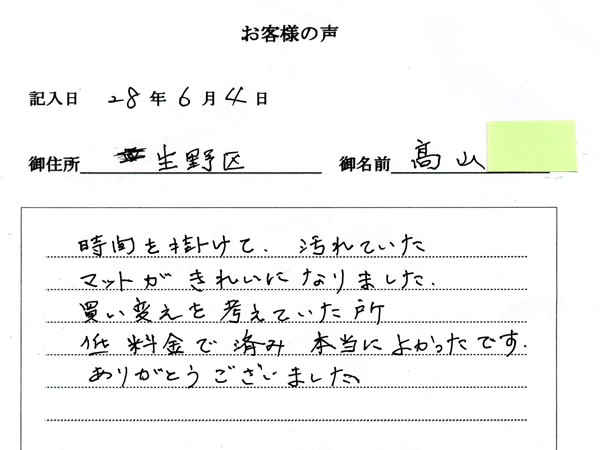 お客様の声
記入日 28年6月4日
御住所 生野区 御名前 高山
時間を掛けて、汚れていた
マットがきれいになりました。
買い変えを考えていた所
低料金で済み本当によかったです。
ありがとうございました